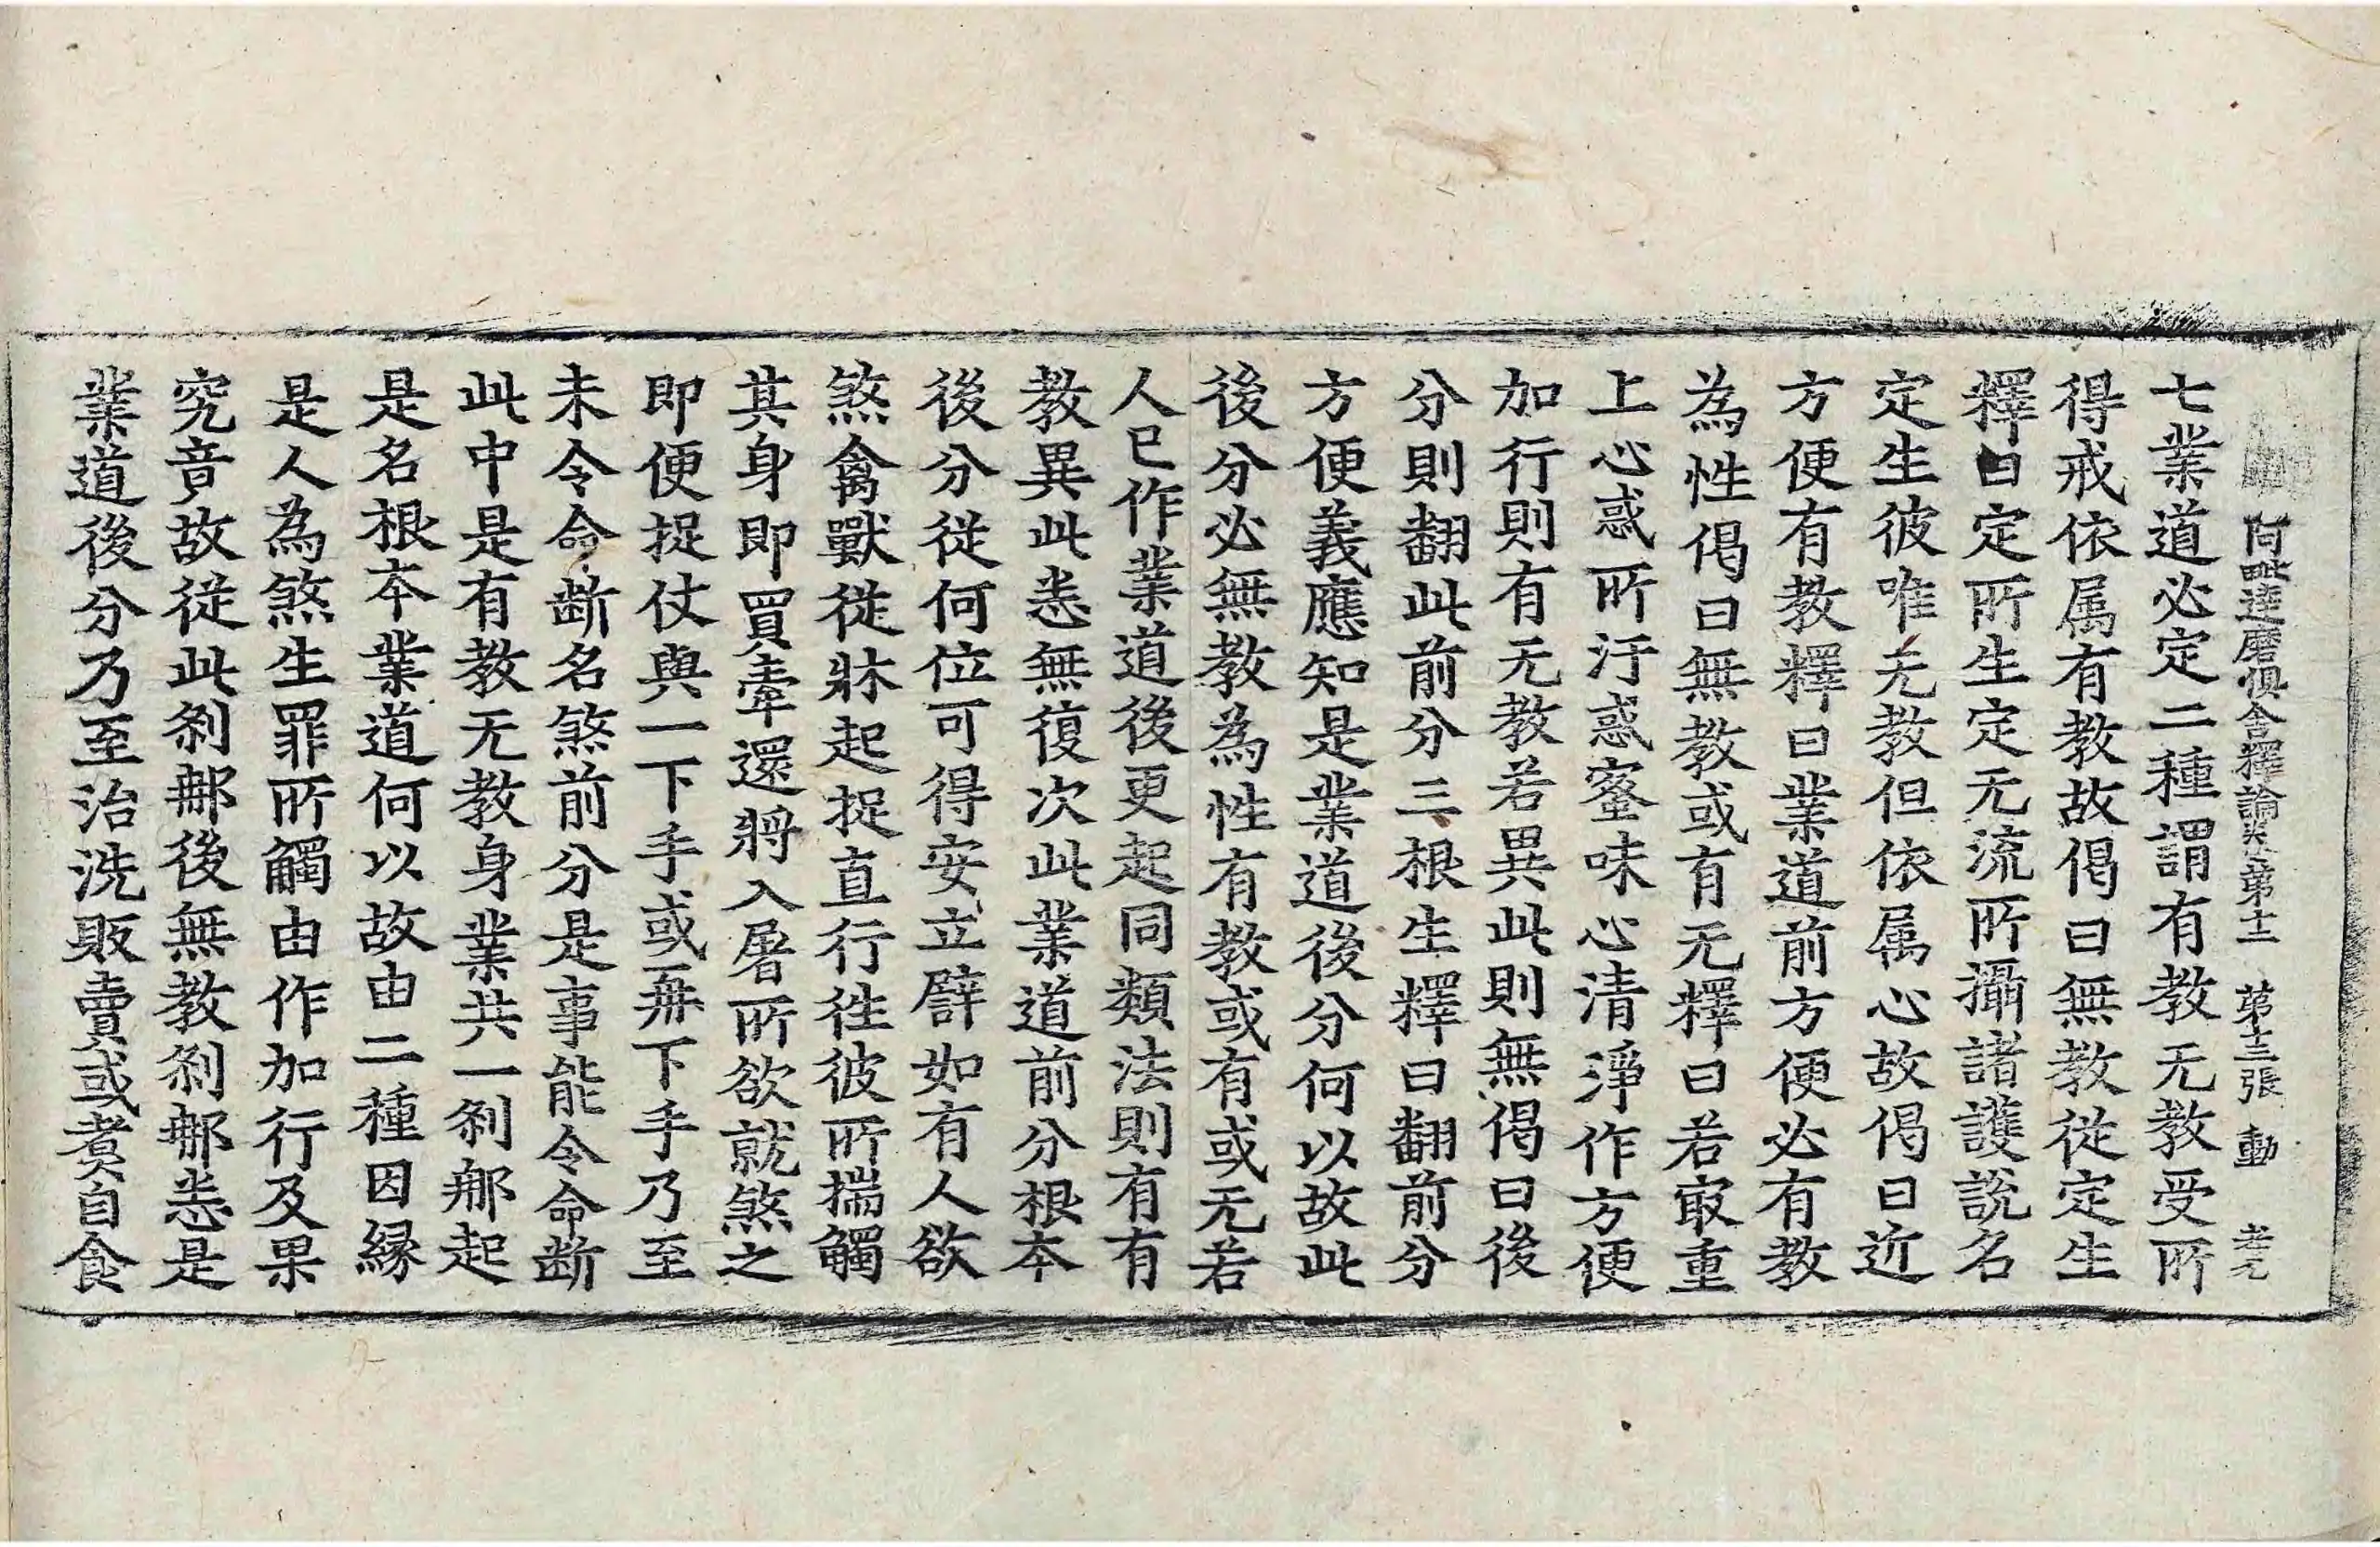 阿毗達磨俱舍釋論 第十二 第十三張 動
七業道必定二種謂有教无教受所
得戒依属有教故偈曰無教從定生
釋曰定所生定无流所攝諸護說名
定生彼唯无教但依属心故偈曰近
方便有教釋曰業道前方便必有教
為性偈曰無教或有无釋曰若㝡重
上心惑所汙惑蜜味心清淨作方便
加行則有无教若異此則無偈曰後
分則翻此前分三根生釋曰翻前分
方便義應知是業道後分何以故此
後分必無教為性有教或有或无若
人已作業道後更起同類法則有有
教異此悉無復次此業道前分根本
後分從何位可得安立譬如有人欲
煞禽獸從牀起捉直行徃彼所揣觸
其身即買牽還將入屠所欲就煞之
即便捉仗與一下手或再下手乃至
未令命断名煞前分是事能令命断
此中是有教无教身業共一刹那起
是名根本業道何以故由二種因縁
是人為煞生罪所觸由作加行及果
究竟故從此刹那後無教刹那悉是
業道後分乃至治洗販賣或煑自食